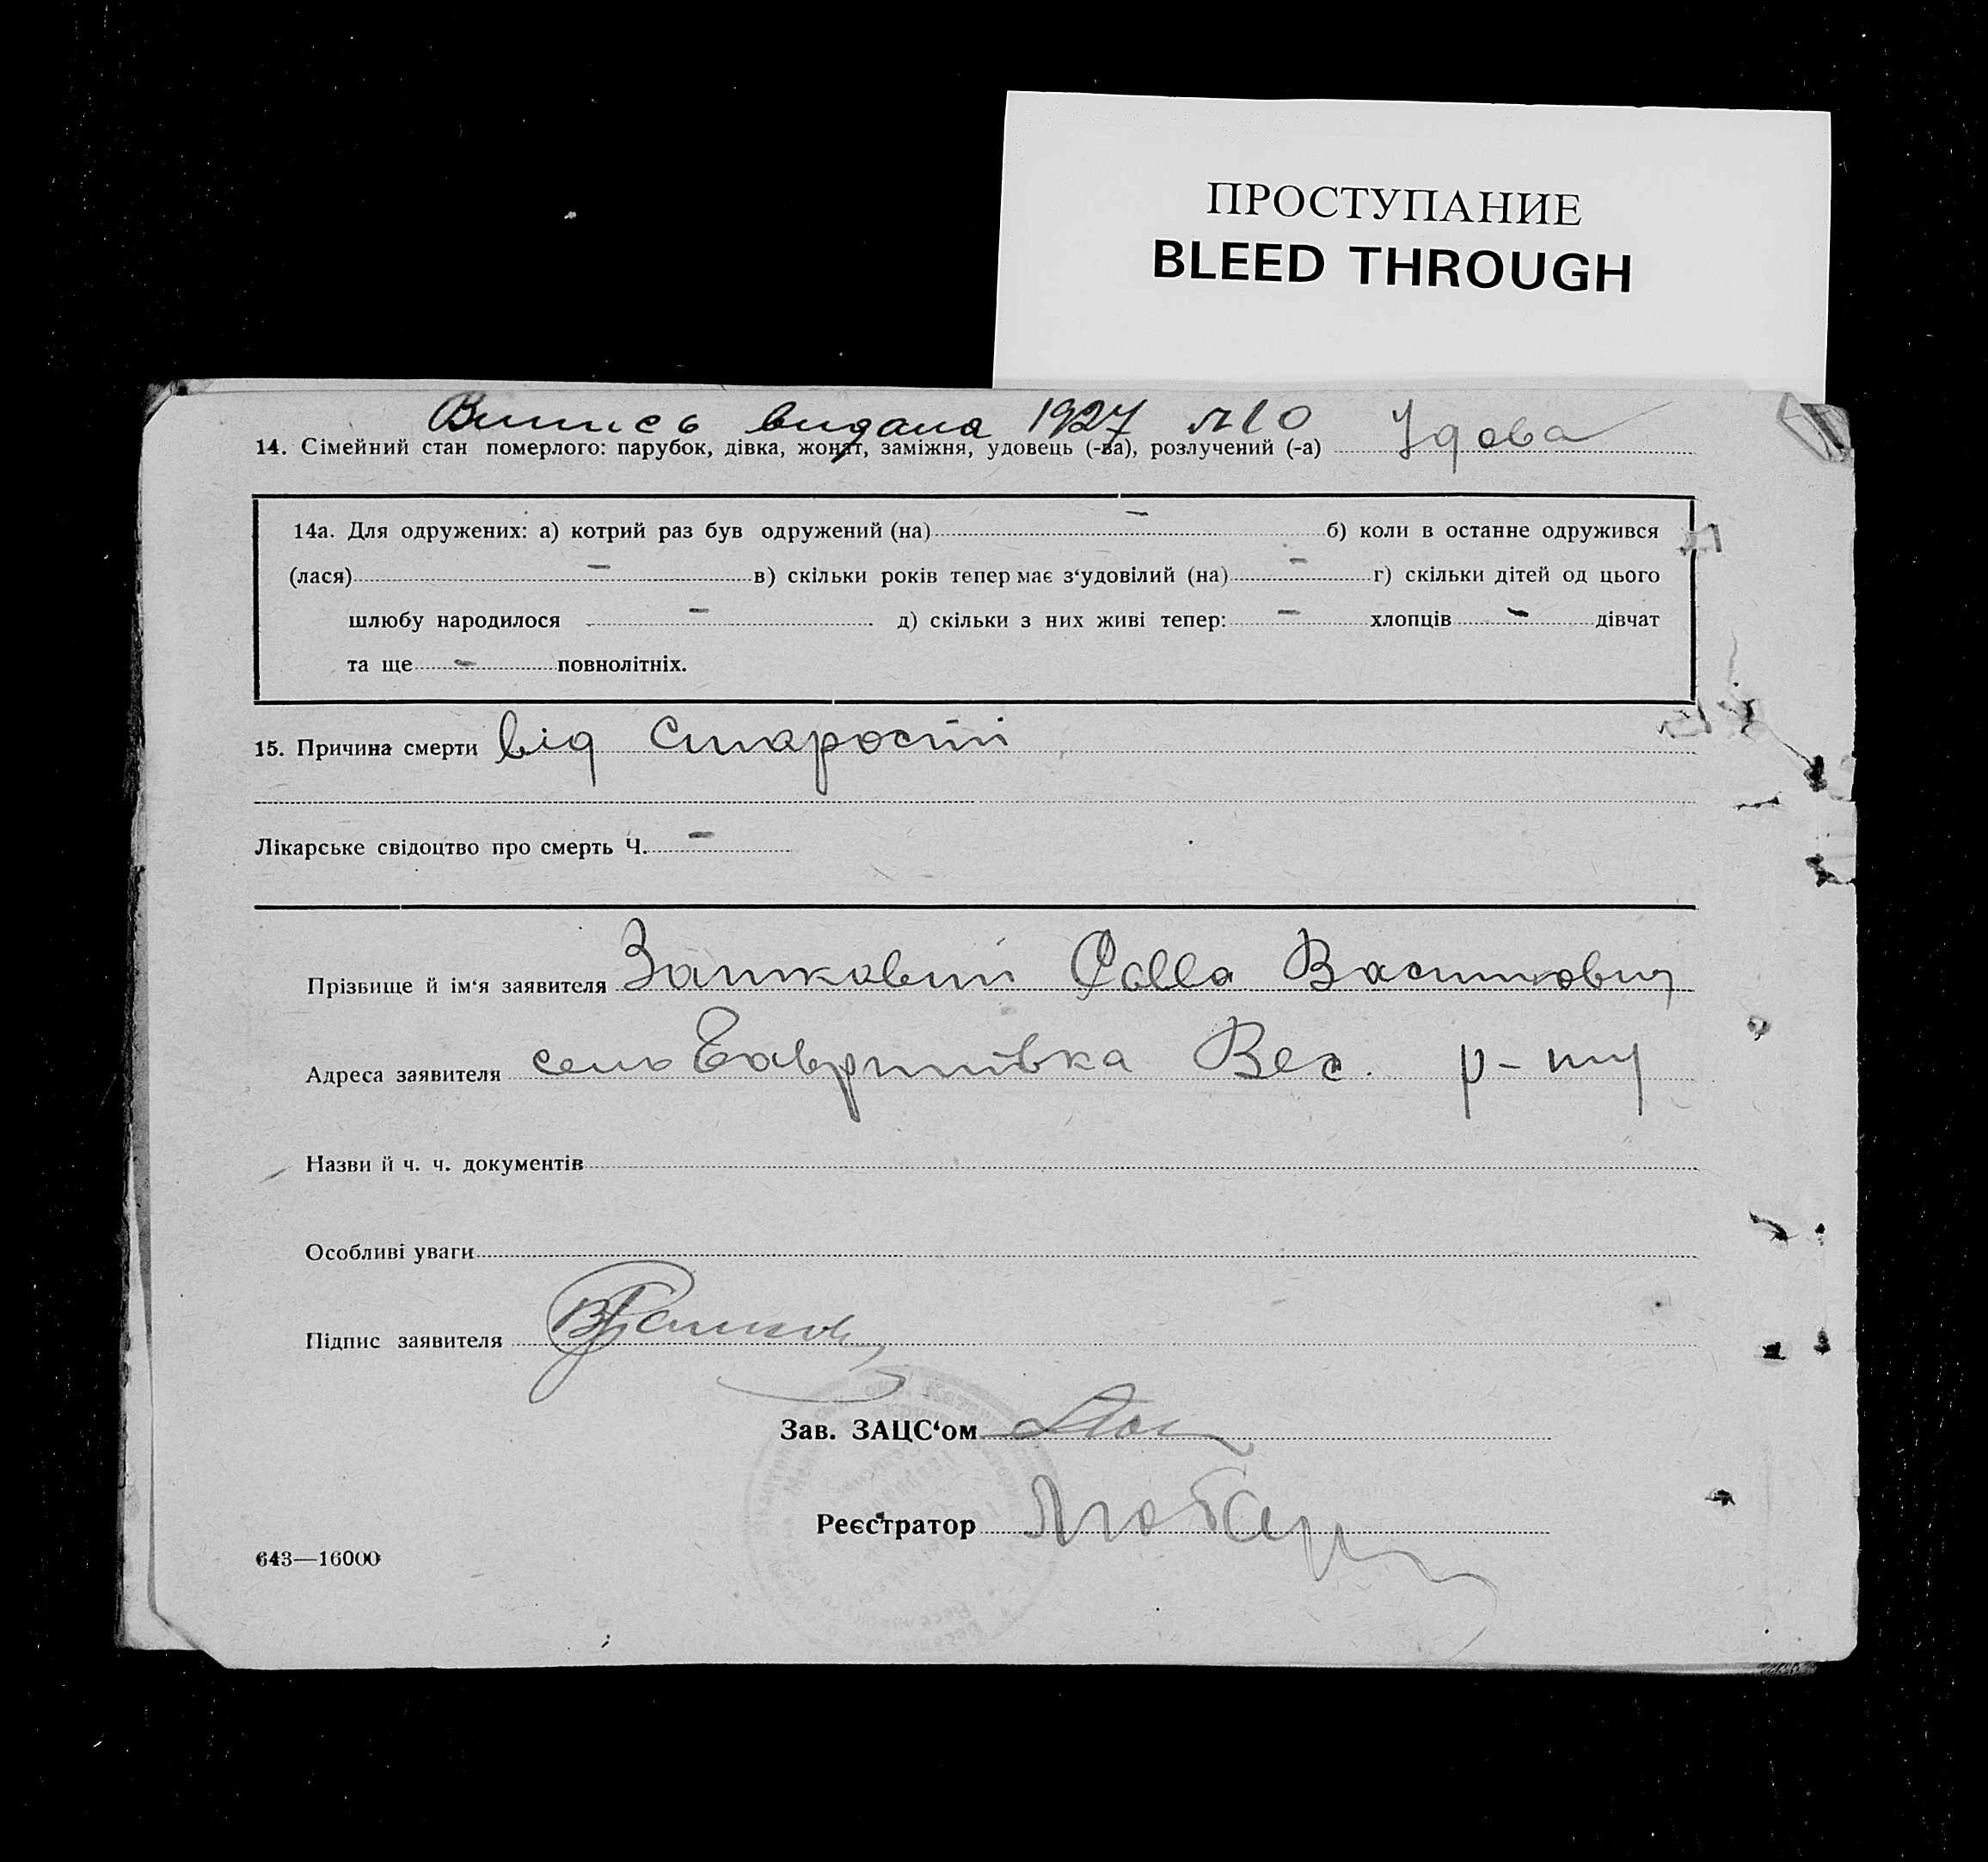 ПРОСТУПАНИЕ
BLEED THROUGH
Випись видана 1927 №10
14. Сімейний стан померлого: парубок, дівка, жонат, заміжня, удовець (-ва), розлучений (-а) Удова
14а. Для одружених: а) котрий раз був одружений (на) – б) коли в останнє одружився
(лася) – в) скільки років тепер має з‘удовілий (на) – г) скільки дітей од цього
шлюбу народилося – д) скільки з них живі тепер: – хлопців – дівчат
та ще – повнолітніх.
15. Причина смерти від старости
Лікарське свідоцтво про смерть Ч. –
Прізвище й ім‘я заявителя Савва Васильович
Адреса заявителя село Гаврилівка Вес. р-ну
Назви й ч. ч. документів
Особливі уваги
Підпис заявителя
Зав. ЗАЦС‘ом
Реєстратор
643—16000